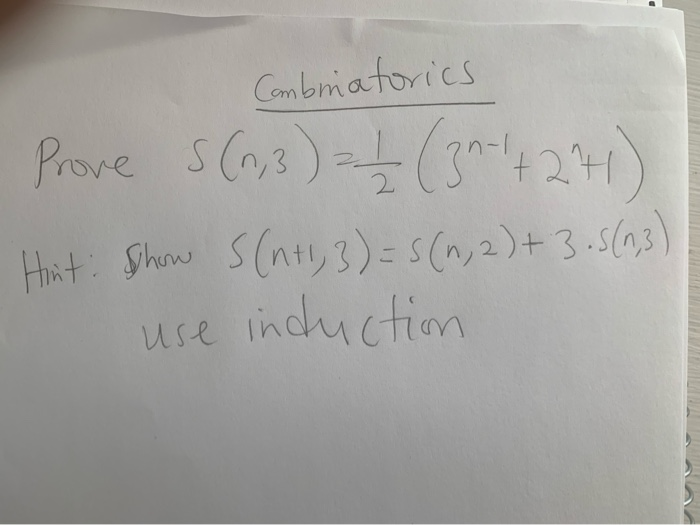 Combinatorics
Prove S(n,3) = 1/2 (3^{n-1} + 2^n + 1)
Hint: Show S(n+1,3) = S(n,2) + 3·S(n,3)
use induction